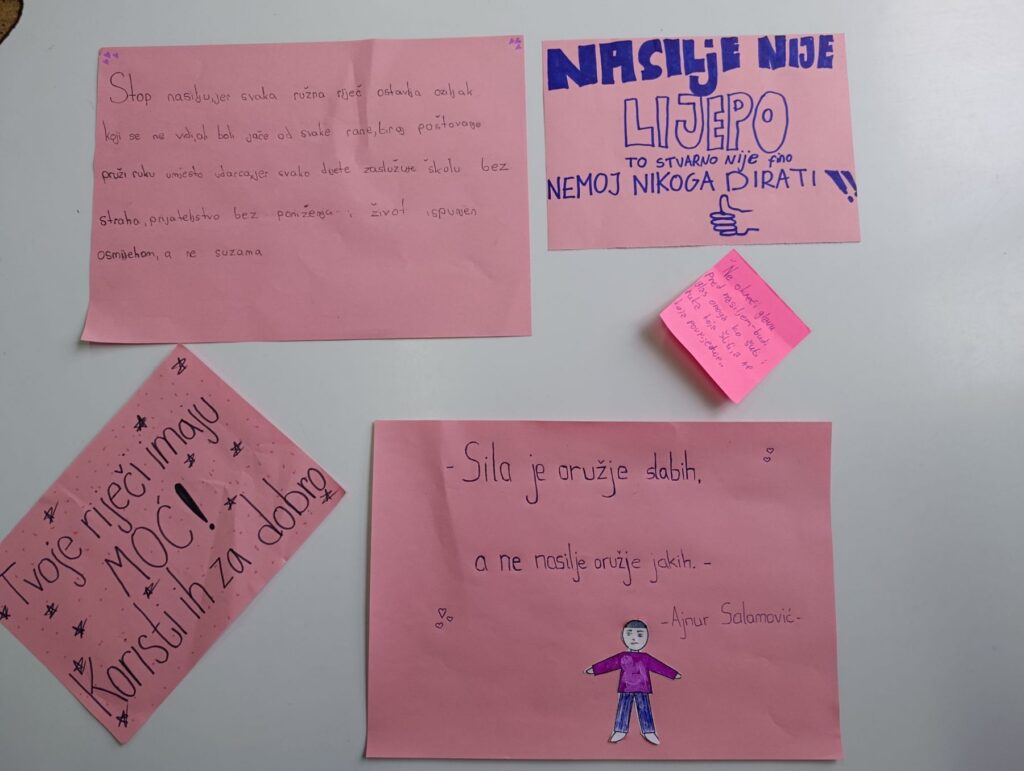 Stop nasilju,jer svaka ružna riječ ostavlja ožiljak
koji se ne vidi,ali boli jače od svake rane,biraj poštovanje
pruži ruku umjesto udarca,jer svako dijete zaslužuje školu bez
straha,prijateljstvo bez poniženja i život ispunjen
osmijehom, a ne suzama
NASILJE NIJE
LIJEPO
TO STVARNO NIJE fino
NEMOJ NIKOGA DIRATI !!
Ne okreći glavu
pred nasiljem-budi
glas onoga ko šuti i
ruka koja štiti,a ne
koja povrjeđuje..
Tvoje riječi imaju
MOĆ!
Koristi ih za dobro
- Sila je oružje slabih,
a ne nasilje oružje jakih. -
-Ajnur Salamović-